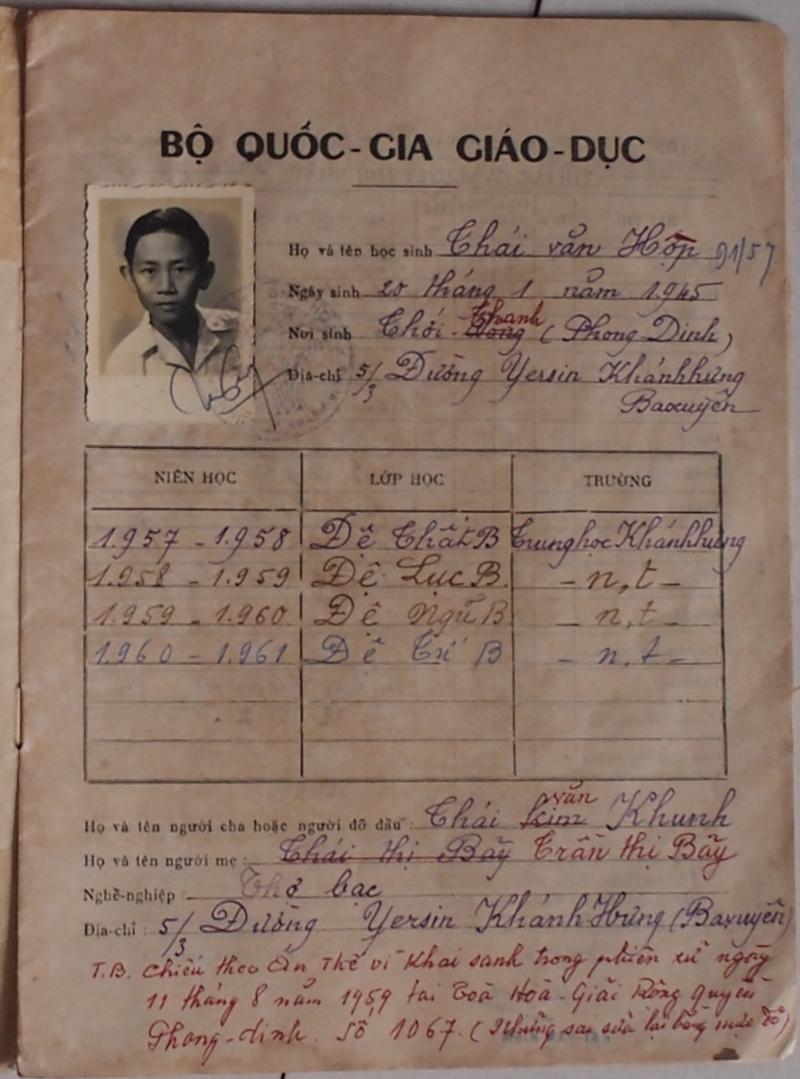 BỘ QUỐC-GIA GIÁO-DỤC
Họ và tên học sinh Thái văn Hợp 91/57
Ngày sinh 20 tháng 1 năm 1.945
Thanh
Nơi sinh Thới-Long (Phong-Dinh)
Địa-chỉ 5/3 Đường Yersin Khánhhưng
Baxuyên
NIÊN HỌC LỚP HỌC TRƯỜNG
1.957 - 1.958 Đệ Thất B Trung học Khánhhưng
1.958 - 1.959 Đệ Lục B. - n,t -
1.959 - 1.960 Đệ Ngũ B - n,t -
1.960 - 1.961 Đệ Tứ B - n,t -
văn
Họ và tên người cha hoặc người đỡ đầu : Thái kim Khunh
Họ và tên người mẹ : Thái thị Bãy Trần thị Bãy
Nghề-nghiệp : Thợ bạc
Địa-chỉ : 5/3 Đường Yersin Khánh Hưng (Baxuyên)
T.B. Chiếu theo Án Thế vì Khai sanh trong phiên xử ngày
11 tháng 8 năm 1959 tại Toà Hoà-Giải Rộng Quyền
Phong-dinh. Số 1067. (Những sai sửa lại bằng mực đỏ)